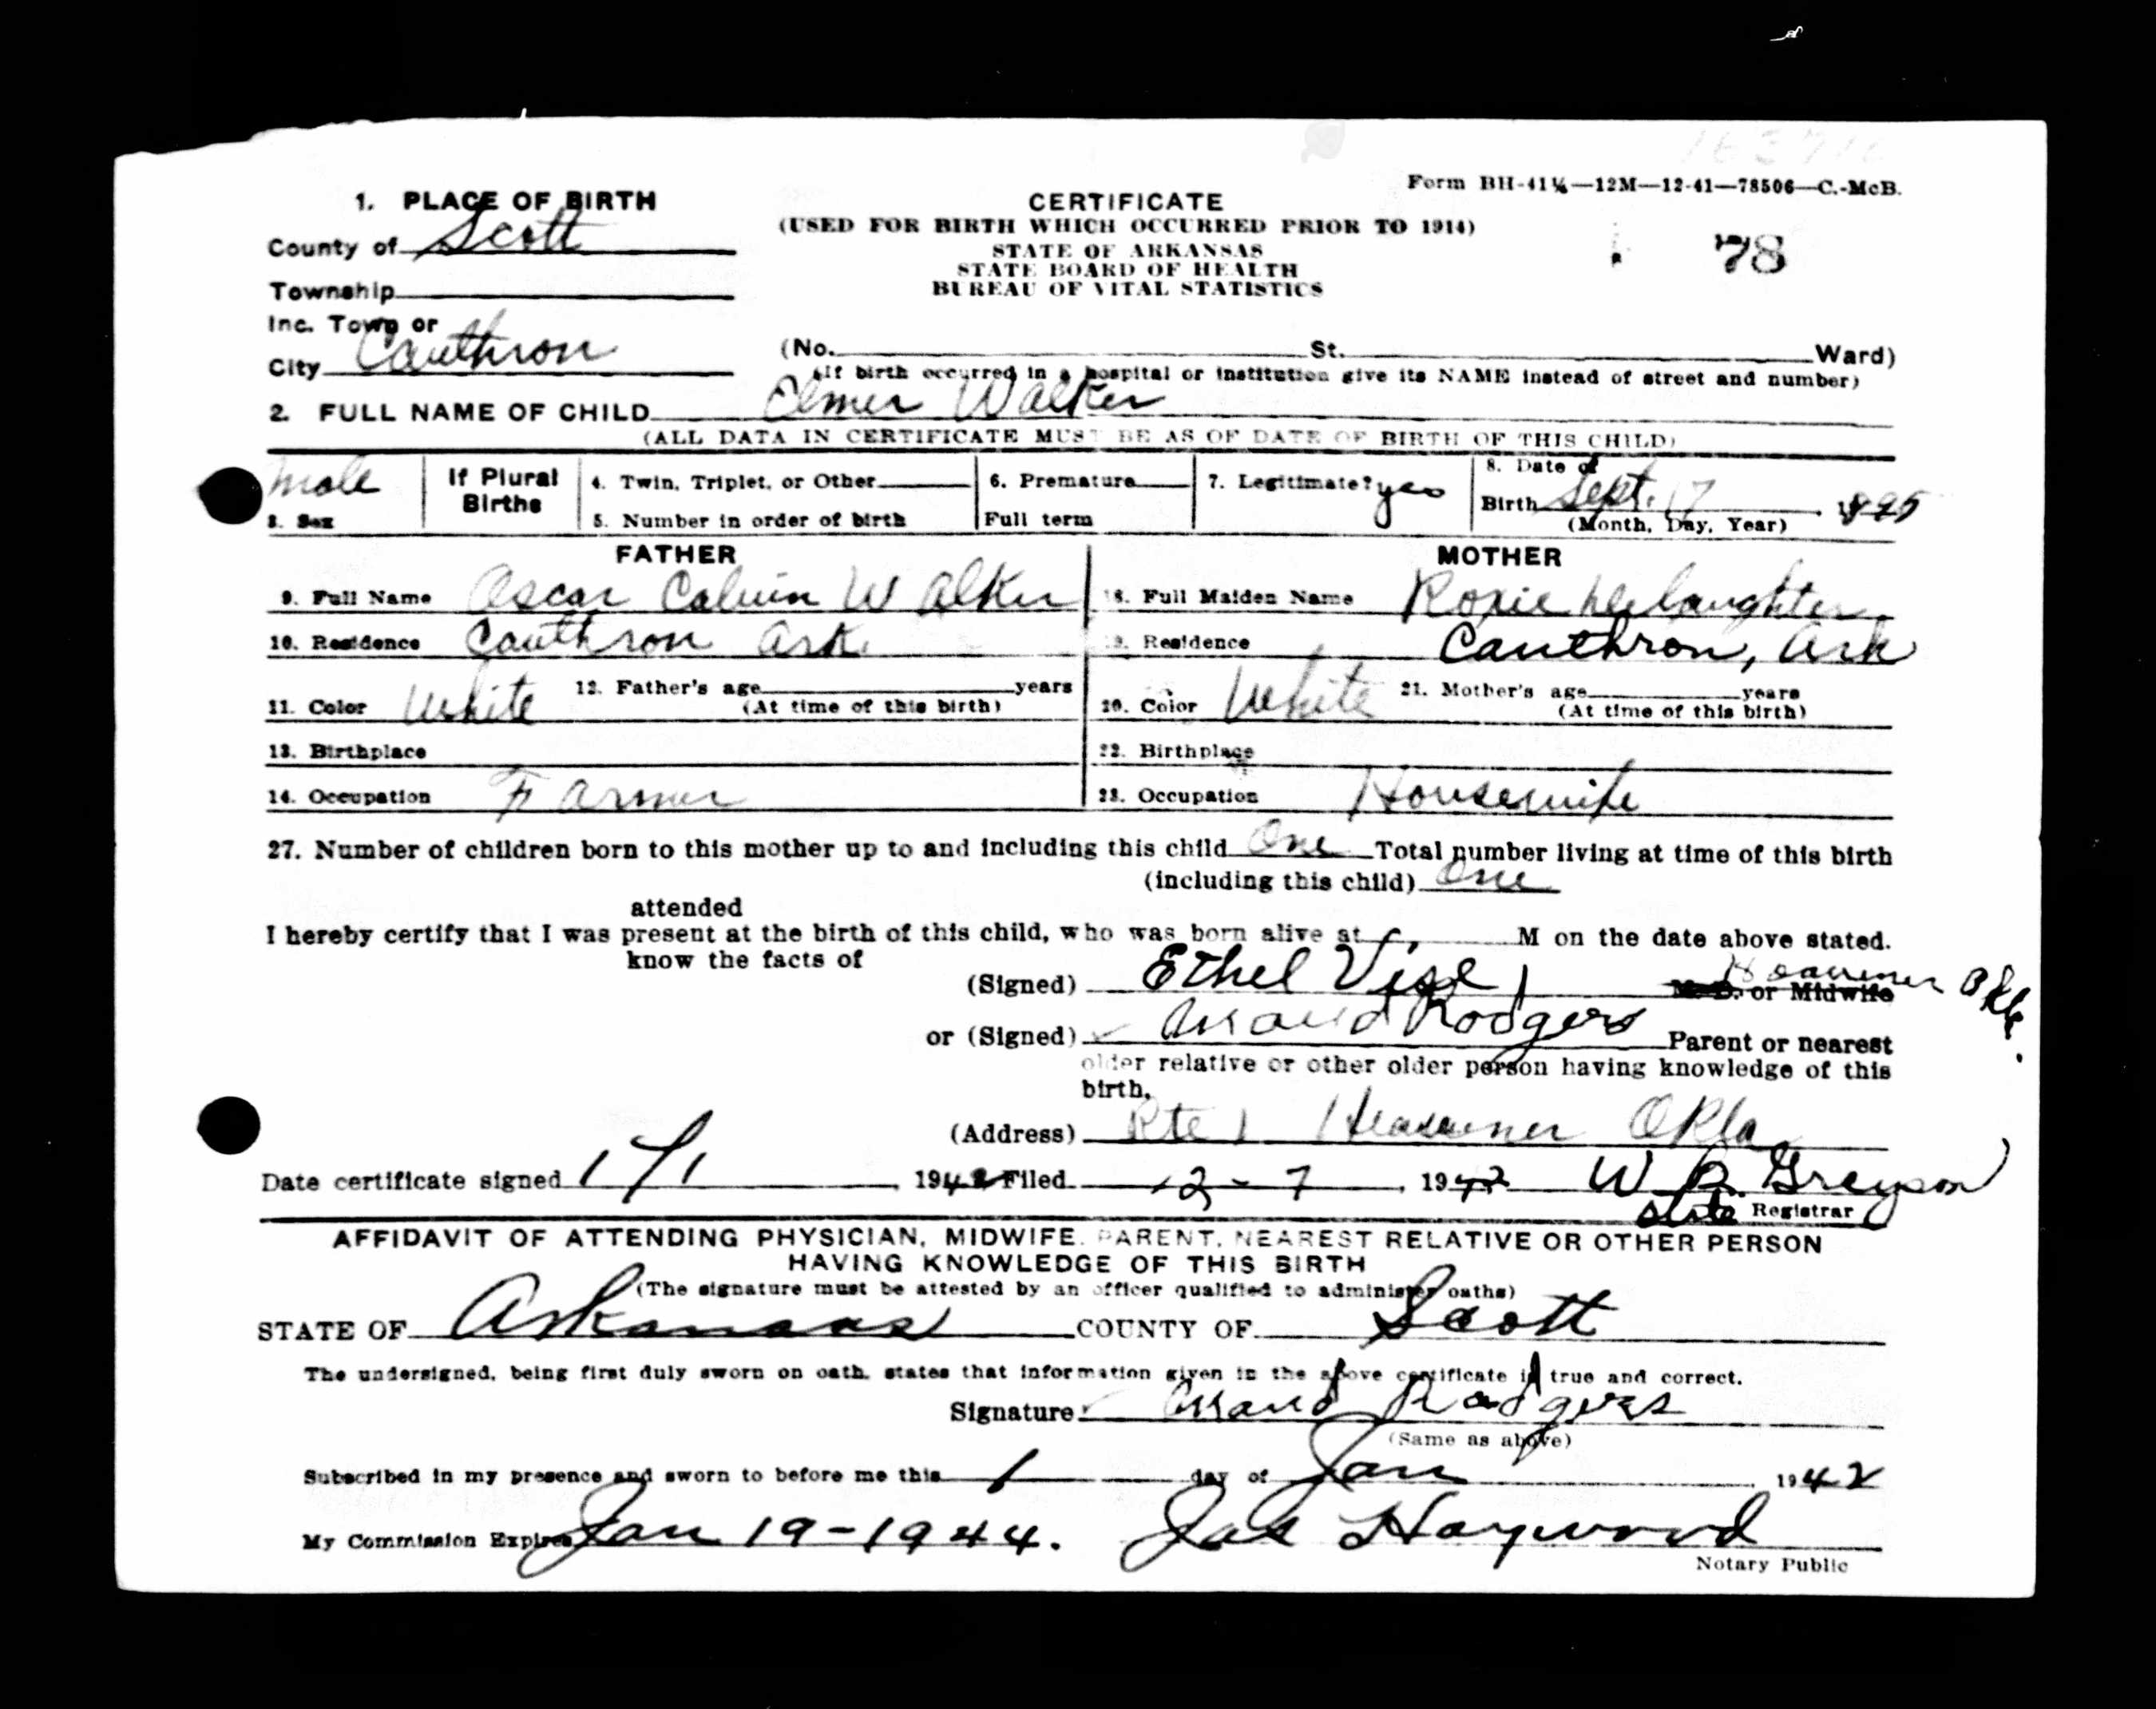 Form BH-41¼—12M—12-41—78506—C.-McB.
1. PLACE OF BIRTH
County of Scott
Township
Inc. Town or
City Cauthron
CERTIFICATE
(USED FOR BIRTH WHICH OCCURRED PRIOR TO 1914)
STATE OF ARKANSAS
STATE BOARD OF HEALTH
BUREAU OF VITAL STATISTICS
78
(No. St. Ward)
(If birth occurred in a hospital or institution give its NAME instead of street and number)
2. FULL NAME OF CHILD Elmer Walker
(ALL DATA IN CERTIFICATE MUST BE AS OF DATE OF BIRTH OF THIS CHILD)
Male
3. Sex
If Plural
Births
4. Twin, Triplet, or Other
5. Number in order of birth
6. Premature
Full term
7. Legitimate? yes
8. Date of
Birth Sept. 17 1895
(Month, Day, Year)
FATHER
9. Full Name Oscar Calvin Walker
10. Residence Cauthron Ark.
11. Color White 12. Father's age years
(At time of this birth)
13. Birthplace
14. Occupation Farmer
MOTHER
18. Full Maiden Name Roxie
19. Residence Cauthron, Ark
20. Color White 21. Mother's age years
(At time of this birth)
22. Birthplace
23. Occupation Housewife
27. Number of children born to this mother up to and including this child One Total number living at time of this birth
(including this child) One
attended
I hereby certify that I was present at the birth of this child, who was born alive at M on the date above stated.
know the facts of
(Signed) Ethel Vise M. D. or Midwife Heavener Okla.
or (Signed) Maud Rodgers Parent or nearest
older relative or other older person having knowledge of this
birth.
(Address) Rte 1 Heavener Okla
Date certificate signed 1/1 1942 Filed 2-7 1942 W B Grayson
State Registrar
AFFIDAVIT OF ATTENDING PHYSICIAN, MIDWIFE, PARENT, NEAREST RELATIVE OR OTHER PERSON
HAVING KNOWLEDGE OF THIS BIRTH
(The signature must be attested by an officer qualified to administer oaths)
STATE OF Arkansas COUNTY OF Scott
The undersigned, being first duly sworn on oath, states that information given in the above certificate is true and correct.
Signature Maud Rodgers
(Same as above)
Subscribed in my presence and sworn to before me this 1 day of Jan 1942
My Commission Expires Jan 19-1944. Jas Haywood
Notary Public